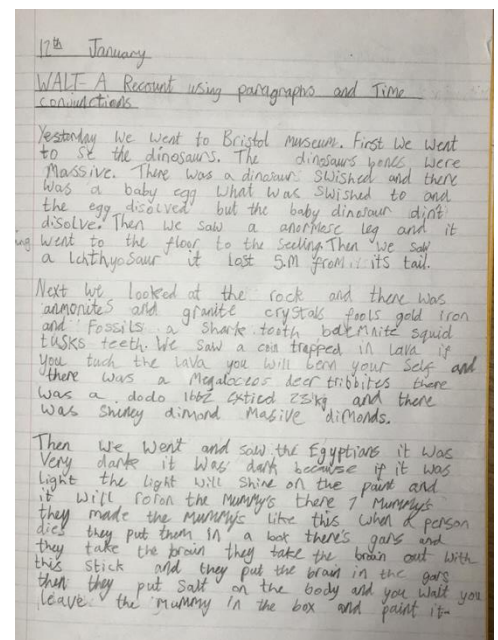 12th January
WALT- A Recount using paragraphs and Time
conjunctions
Yesterday we went to Bristol museum. First we went
to se the dinosaurs. The dinosaurs bones were
Massive. There was a dinosaur Swished and there
was a baby egg what was swished to and
the egg disolved but the baby dinosaur din't
disolve. Then we saw a anormose leg and it
went to the floor to the seeling. Then we saw
a Ichthyosaur it lost 5.M from its tail.
Next we looked at the rock and there was
anmonites and granite crystals fools gold iron
and Fossils a shark tooth squid
tusks teeth. We saw a coin trapped in lava if
you tuch the lava you will bern your self and
there was a Megaloceos deer tribbites there
was a dodo 1662 extied 23kg and there
was shiney dimond Masive dimonds.
Then we went and saw the Egyptians it was
very darke it was dark because if it was
light the light will shine on the paint and
it will roron the Mummy's there 7 Mummy's
they made the Mummy's like this when a person
dies they put them in a box there's gars and
they take the brain they take the brain out with
this stick and they put the brain in the gars
then they put salt on the body and you wait you
leave the mummy in the box and paint it